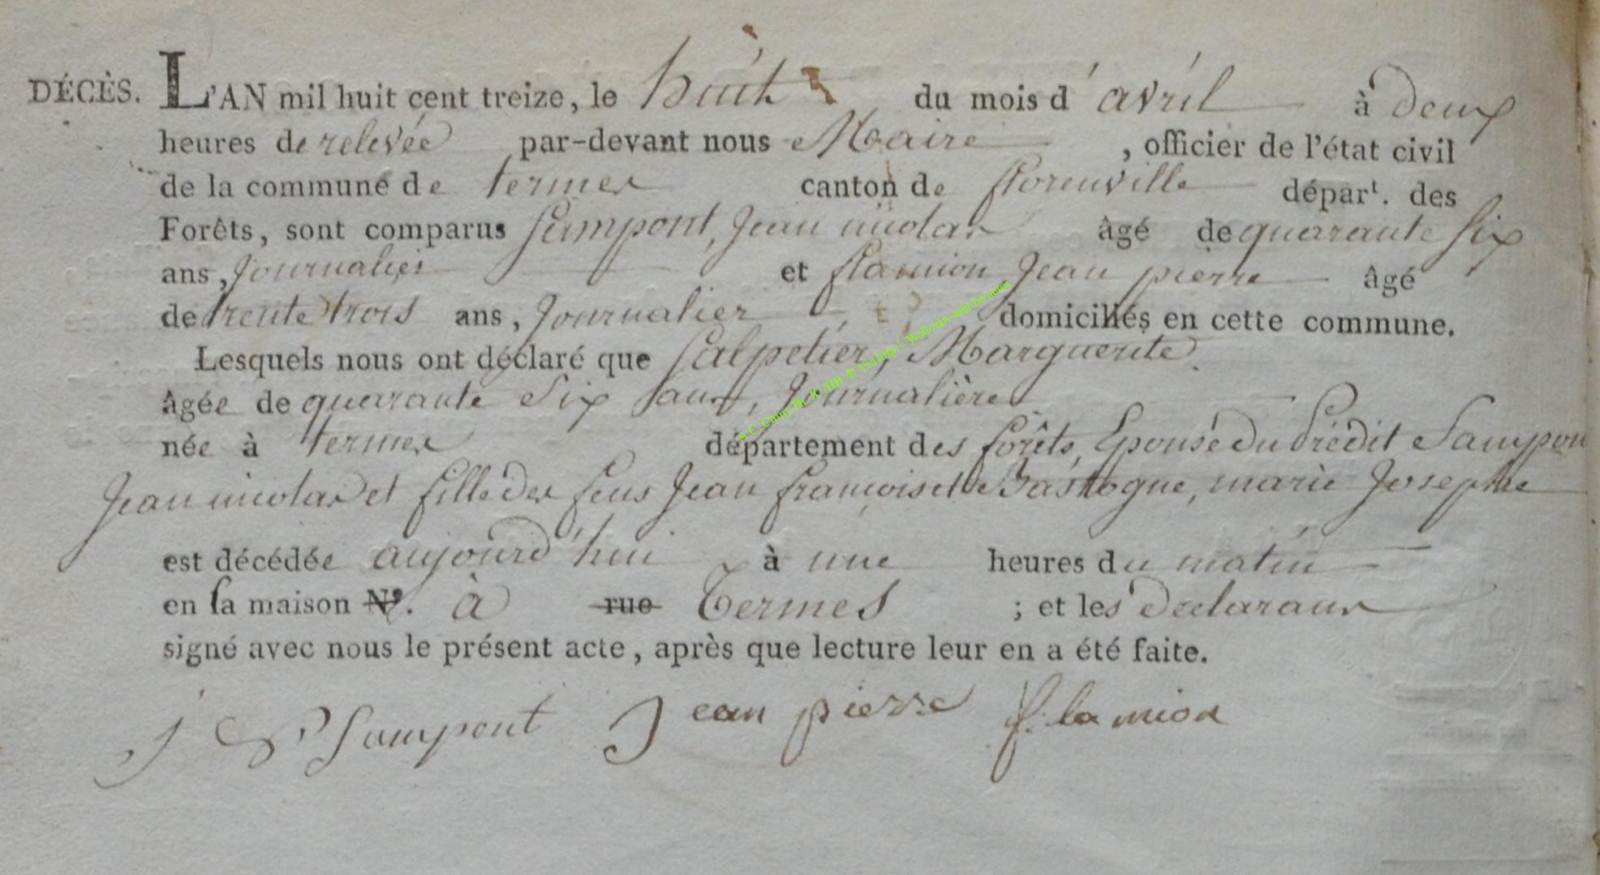 DÉCÈS. L'AN mil huit cent treize, le huit du mois d'avril à deux
heures de relevée par-devant nous Maire, officier de l'état civil
de la commune de termes canton de florenville départ. des
Forêts, sont comparus Sampont, Jean nicolas âgé de quarante Six
ans, Journalier et flamion Jean pierre âgé
de trente trois ans, Journalier domiciliés en cette commune.
Lesquels nous ont déclaré que Salpetier, Marguerite
âgée de quarante Six ans, Journalière
née à termes département des forêts, Epouse du Prédit Sampont
Jean nicolas et fille des feus Jean françois et Bastogne, marie Josephe
est décédée aujourd'hui à une heures du matin
en sa maison N°. à rue Termes ; et les declarans
signé avec nous le présent acte, après que lecture leur en a été faite.
J N Sampont Jean pierre flamion